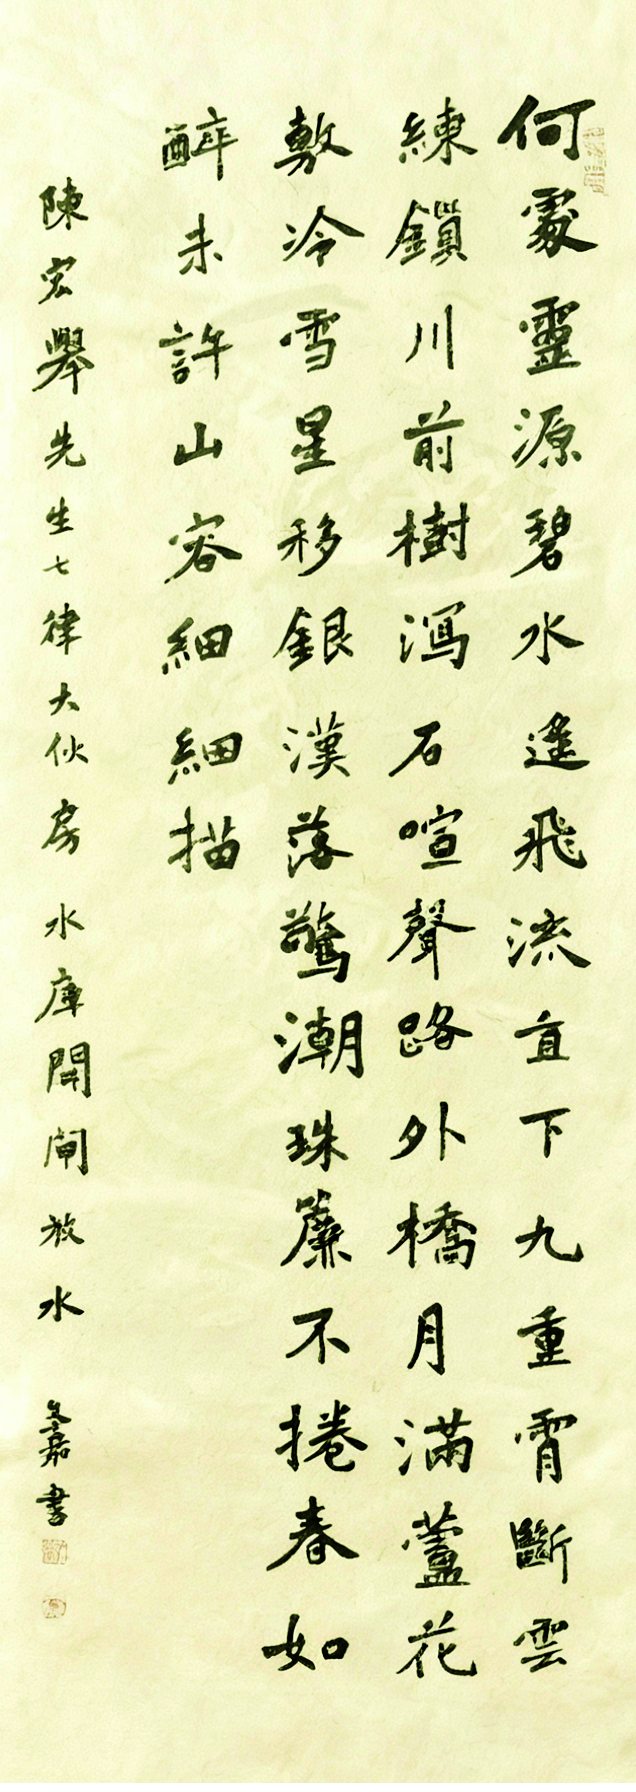 何處靈源碧水遙飛流直下九重霄斷雲
練鎖川前樹瀉石喧聲路外橋月滿蘆花
敷冷雪星移銀漢落驚潮珠簾不捲春如
醉未許山容細細描
陳宏舉先生七律大伙房水庫開閘放水 嘉書